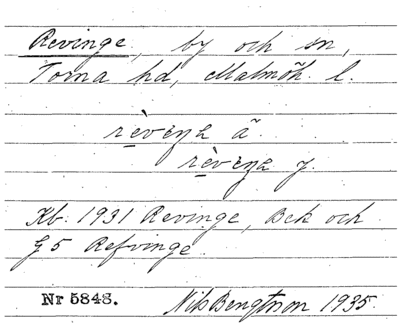 Revinge, by och sn,
Torna hd, Malmöh. l.
rèveŋa ä.
rèveŋa y.
Kb. 1931 Revinge, Bek och
G 5 Refvinge.
Nr 5848. Nils Bengtsson 1935.